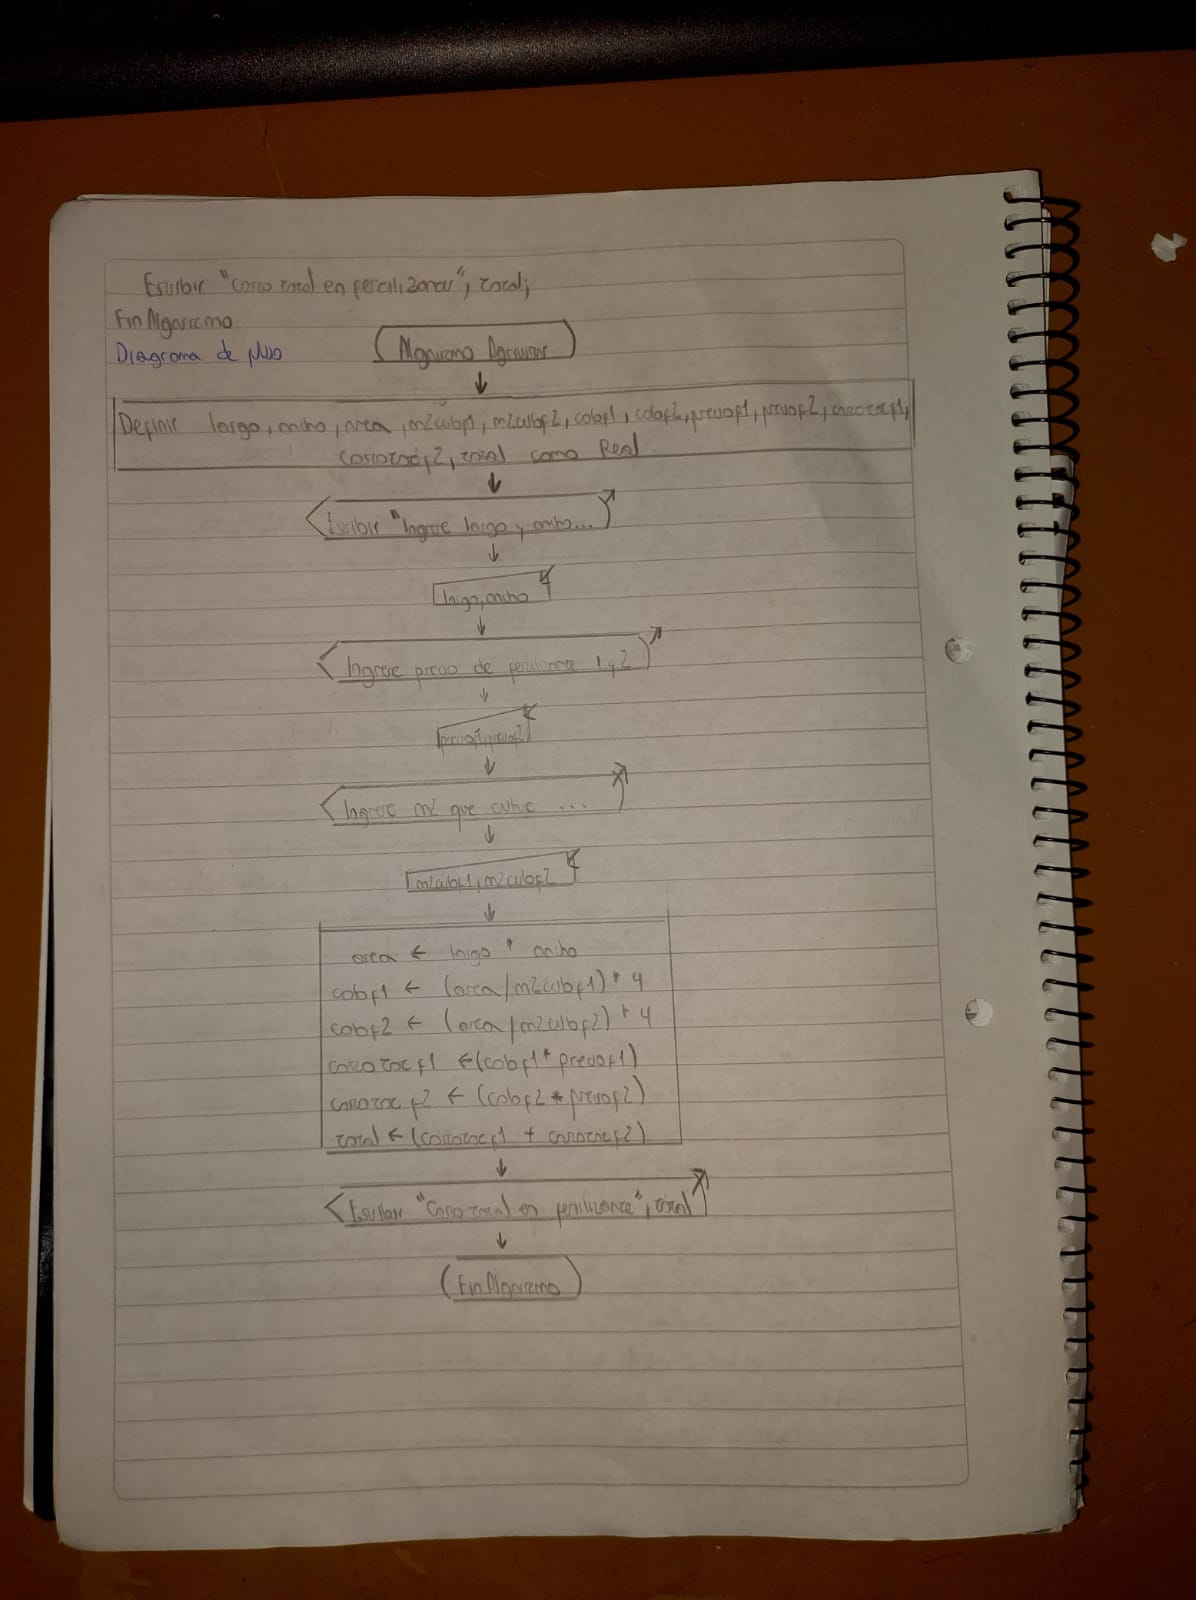 Escribir "Costo total en fertilizante", total;
FinAlgoritmo
Diagrama de flujo
Algoritmo
Definir largo, ancho, area, m2cubf1, m2cubf2, cobf1, cobf2, preciof1, preciof2, costototf1,
costototf2, total como Real
Escribir "Ingrese largo y ancho...
largo, ancho
Ingrese precio de fertilizante 1 y 2
preciof1, preciof2
Ingrese m2 que cubre ...
m2cubf1, m2cubf2
area ← largo * ancho
cobf1 ← (area/m2cubf1) * 4
cobf2 ← (area/m2cubf2) * 4
costototf1 ← (cobf1 * preciof1)
costototf2 ← (cobf2 * preciof2)
total ← (costototf1 + costototf2)
Escribir "Costo total en fertilizante", total
FinAlgoritmo